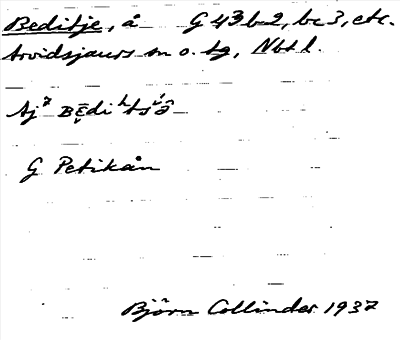 Beditje, å G 43 b 2, bc 3, etc.
Arvidsjaurs sn o. tg, Nbtl.
Aj
G Petikån
Björn Collinder 1937